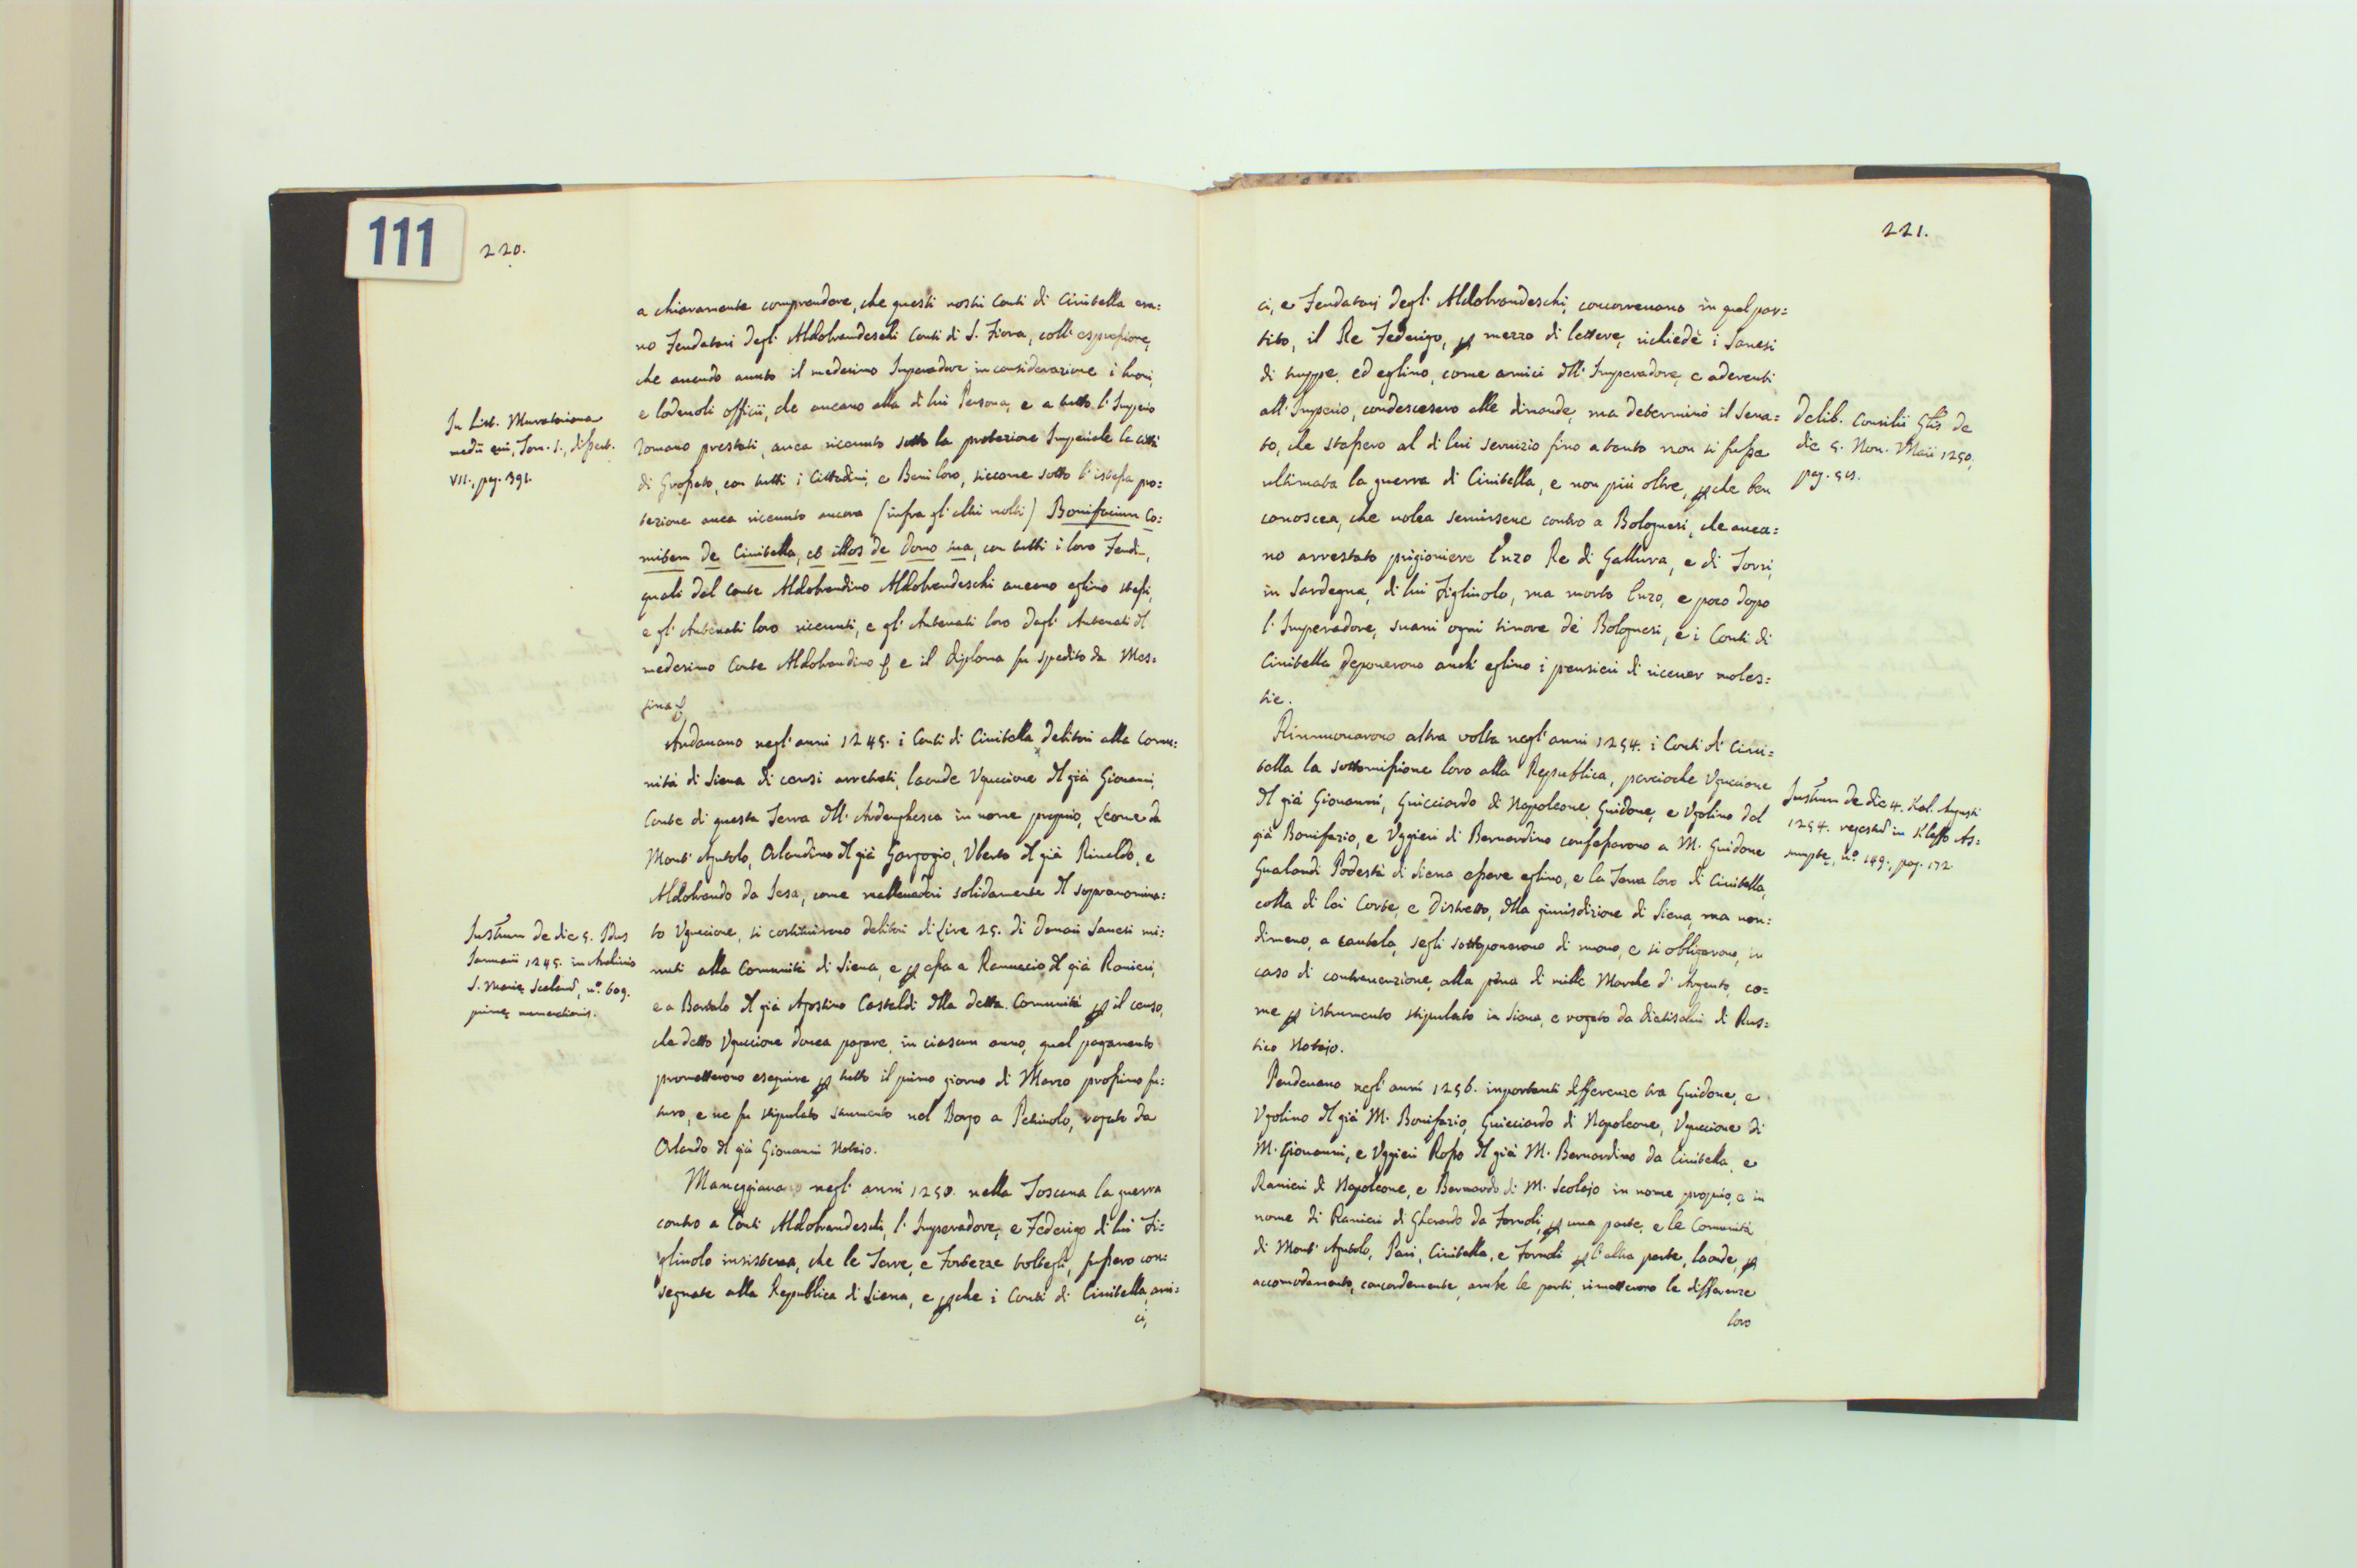 111
220.
a chiaramente comprendere, che questi nostri Conti di Civitella era=
no Feudatari degl' Aldobrandeschi Conti di S. Fiora, coll' espressione,
che avendo avuto il medesimo Imperadore in considerazione i buoni,
e lodevoli officii, che aveano alla di lui Persona, e a tutto l'Imperio
Romano prestati, avea ricevuto sotto la protezione Imperiale la città
di Grosseto, con tutti i Cittadini, e Beni loro, siccome sotto l'istessa pro=
tezione avea ricevuto ancora (infra gl'altri molti) Bonifacium Co=
mitem de Civitella, et illos de domo sua, con tutti i loro Feudi,
quali dal Conte Aldobrandino Aldobrandeschi aveano eglino stessi,
e gl'Antenati loro ricevuti, e gl'Antenati loro dagl'Antenati dl
medesimo Conte Aldobrandino & e il diploma fu spedito da Mes=
sina &
In List. Muratoriana
medii evi, Tom. I., dissert.
VII., pag. 391.
Andavano negl'anni 1245. i Conti di Civitella debitori alla Comu=
nità di Siena di censi arretrati, laonde Uguccione dl già Giovanni,
Conte di questa Terra dll'Ardenghesca in nome proprio, Leone da
Mont'Agutolo, Orlandino dl già Gorgogio, Uberto dl già Rinaldo, e
Aldobrando da Sesa, come mallevadori solidamente dl sopranomina=
to Uguccione, si costituirono debitori di Lire 25. di Denari Sanesi mi=
nuti alla Comunità di Siena, e p essa a Rannuccio dl già Ranieri,
e a Bartalo dl già Agostino Castaldi dlla detta Comunità p il censo,
che detto Uguccione dovea pagare, in ciascun anno, qual pagamento
prometterono eseguire p tutto il primo giorno di Marzo prossimo fu=
turo, e ne fu stipulato strumento nel Borgo a Petriolo, rogato da
Orlando dl già Giovanni Notaio.
Instrum de die 5. Idus
Januarii 1245. in Archivio
S. Marie Scaland, n.° 609.
prime numerationis.
Maneggiavano negl'anni 1250. nella Toscana la guerra
contro a Conti Aldobrandeschi, l'Imperadore, e Federigo di lui Fi=
gliuolo insisteva, che le Terre, e Fortezze toltegli, fussero con=
segnate alla Republica di Siena, e pche i Conti di Civitella ami=
ci,
221.
ci, e Feudatarj degl'Aldobrandeschi, concorrevano in quel par=
tito, il Re Federigo, p mezzo di lettere, richiedè i Sanesi
di truppe, ed eglino, come amici dll'Imperadore, e aderenti
all'Imperio, condescesero alle dimande, ma determinò il Sena=
to, che stassero al di lui servizio fino a tanto non si fusse
ultimata la guerra di Civitella, e non più oltre, pche ben
conoscea, che volea servirsene contro a Bolognesi, che avea=
no arrestato prigioniere Enzo Re di Gallura, e di Torri,
in Sardegna, di lui Figliuolo, ma morto Enzo, e poco dopo
l'Imperadore, svanì ogni timore de' Bolognesi, e i Conti di
Civitella deponerono anch'eglino i pensieri di ricever moles=
tie.
Delib. Consilii Glis de
die 5. Non. Maii 1250.
pag. 5 et s.
Rinnuovarono altra volta negl'anni 1254. i Conti di Civi=
tella la sottomissione loro alla Republica, percioche Uguccione
dl già Giovanni, Guicciardo di Napoleone, Guidone, e Ugolino dal
già Bonifazio, e Uggieri di Bernardino confessarono a M. Guidone
Gualandi Podestà di Siena essere eglino, e la Terra loro di Civitella,
colla di lei Corte, e Distretto, dlla giurisdizione di Siena, ma non=
dimeno, a cautela, segli sottoponerono di nuovo, e si obligarono, in
caso di contravenzione, alla pena di mille Marche d'Argento, co=
me p istrumento stipulato in Siena, e rogato da Dietisalvi di Rus=
tico Notajo.
Instrum de die 4. Kal. Augusti
1254. regestad in Kleffo As=
sumpte, n.° 149., pag. 172.
Pendevano negl'anni 1256. importanti differenze tra Guidone, e
Ugolino dl già M. Bonifazio, Guicciardo di Napoleone, Uguccione di
M. Giovanni, e Uggieri Rosso dl già M. Bernardino da Civitella, e
Ranieri di Napoleone, e Bernardo di M. Scolajo in nome proprio, e in
nome di Ranieri di Gherardo da Fornoli, p una parte, e le Comunità
di Mont'Agutolo, Pari, Civitella, e Fornoli p l'altra parte, laonde, p
accomodamento, concordemente, ambe le parti, rimetterono le differenze
loro